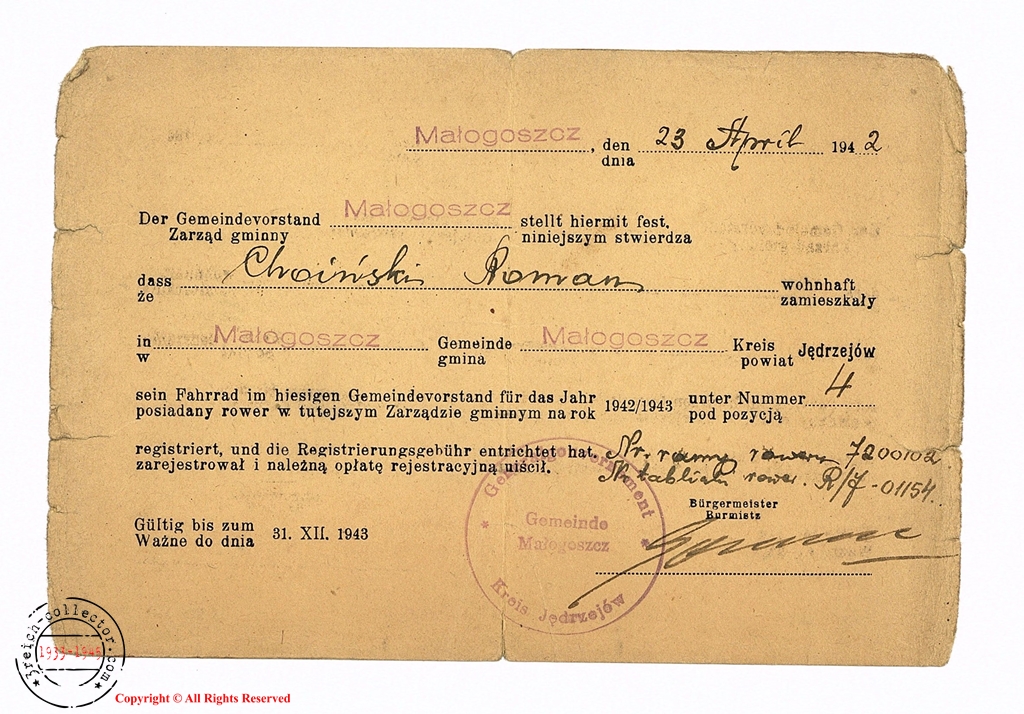 Małogoszcz, den 23 April 1942
dnia
Der Gemeindevorstand Małogoszcz stellt hiermit fest,
Zarząd gminny niniejszym stwierdza
dass Choiński Roman wohnhaft
że zamieszkały
in Małogoszcz Gemeinde Małogoszcz Kreis Jędrzejów
w gmina powiat
sein Fahrrad im hiesigen Gemeindevorstand für das Jahr 1942/1943 unter Nummer 4
posiadany rower w tutejszym Zarządzie gminnym na rok pod pozycją
registriert, und die Registrierungsgebühr entrichtet hat. Nr. ramy roweru 7200102
zarejestrował i należną opłatę rejestracyjną uiścił. Nr tablicy rower. R/J-01154.
Bürgermeister
Burmistz
Gültig bis zum 31. XII. 1943
Ważne do dnia
Generalgouvernement
Gemeinde
Małogoszcz
Kreis Jędrzejów
3reich-collector.com
1933-1945
Copyright © All Rights Reserved